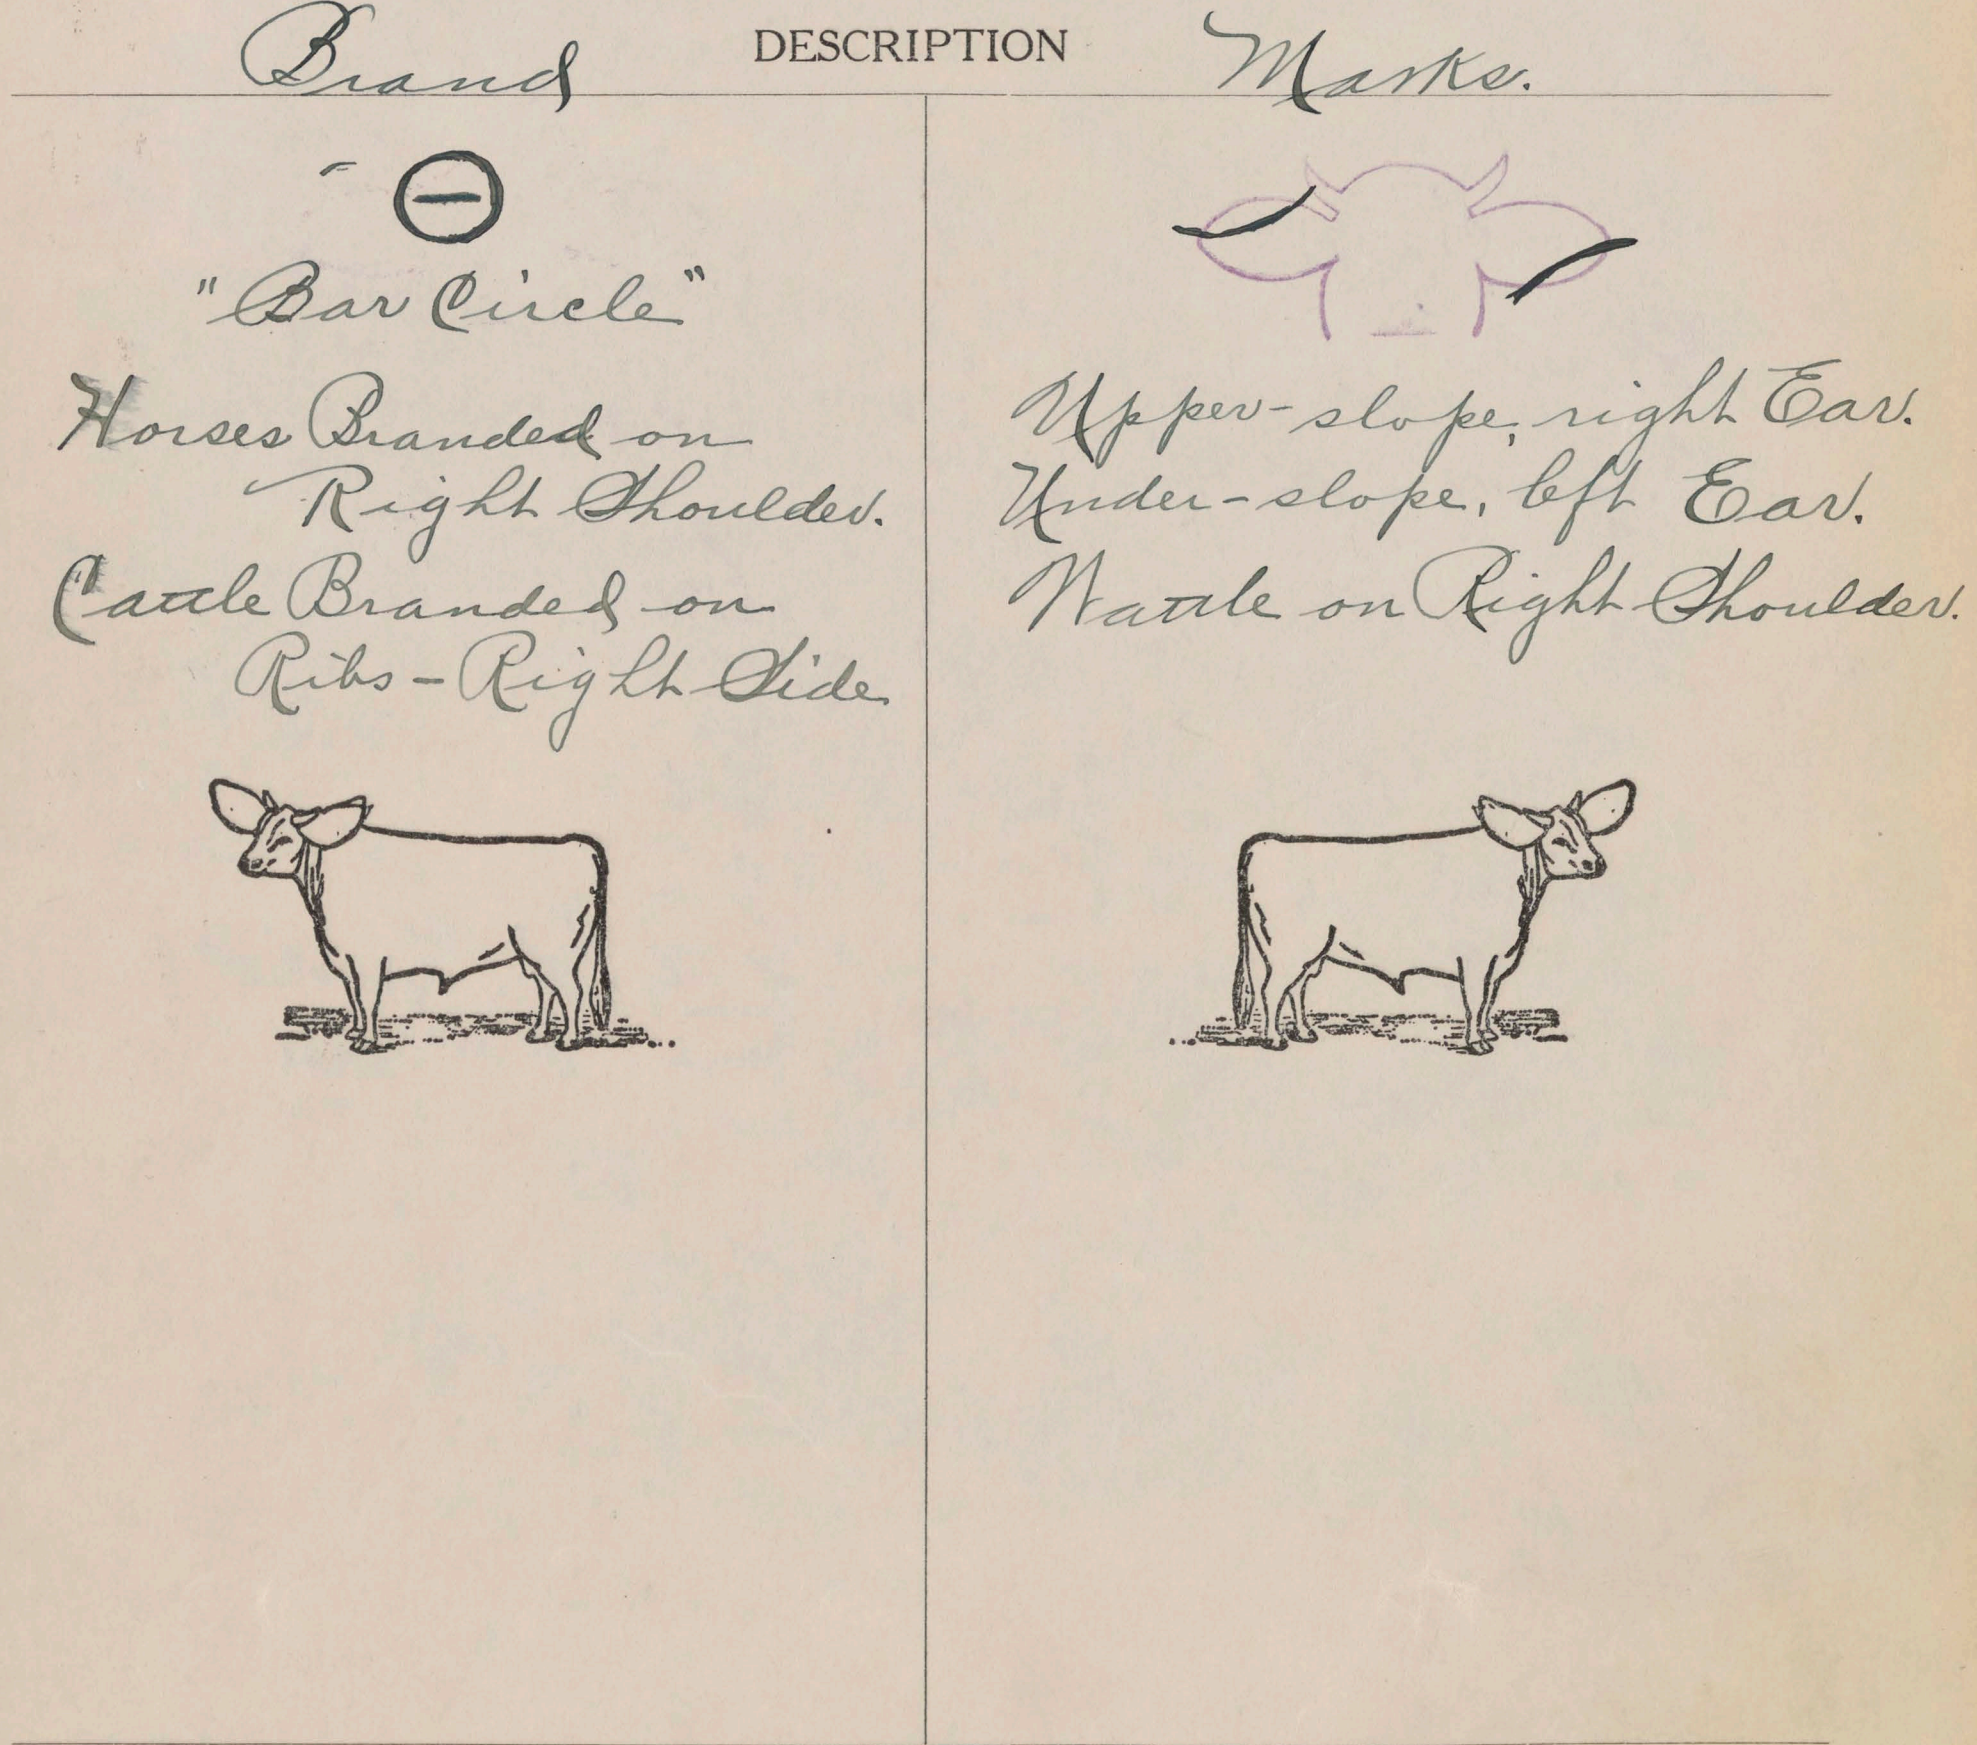 Brand DESCRIPTION Marks.
"Bar Circle"
Horses Branded on
Right Shoulder.
Cattle Branded on
Ribs - Right Side
Upper-slope, right Ear.
Under-slope, left Ear.
Wattle on Right Shoulder.